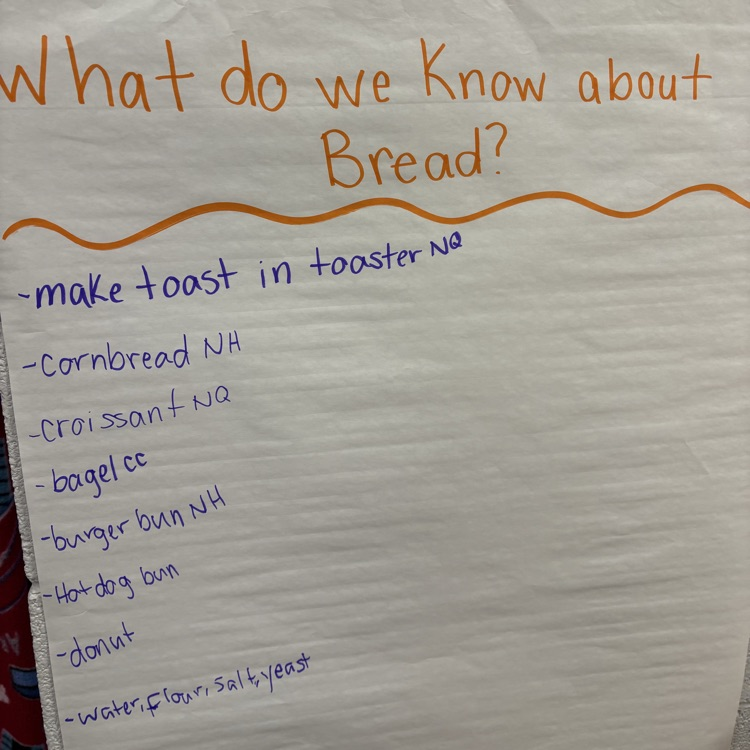 What do we Know about
Bread?
-make toast in toaster NQ
-cornbread NH
-croissant NQ
-bagel CC
-burger bun NH
-Hot dog bun
-donut
-water, flour, salt, yeast